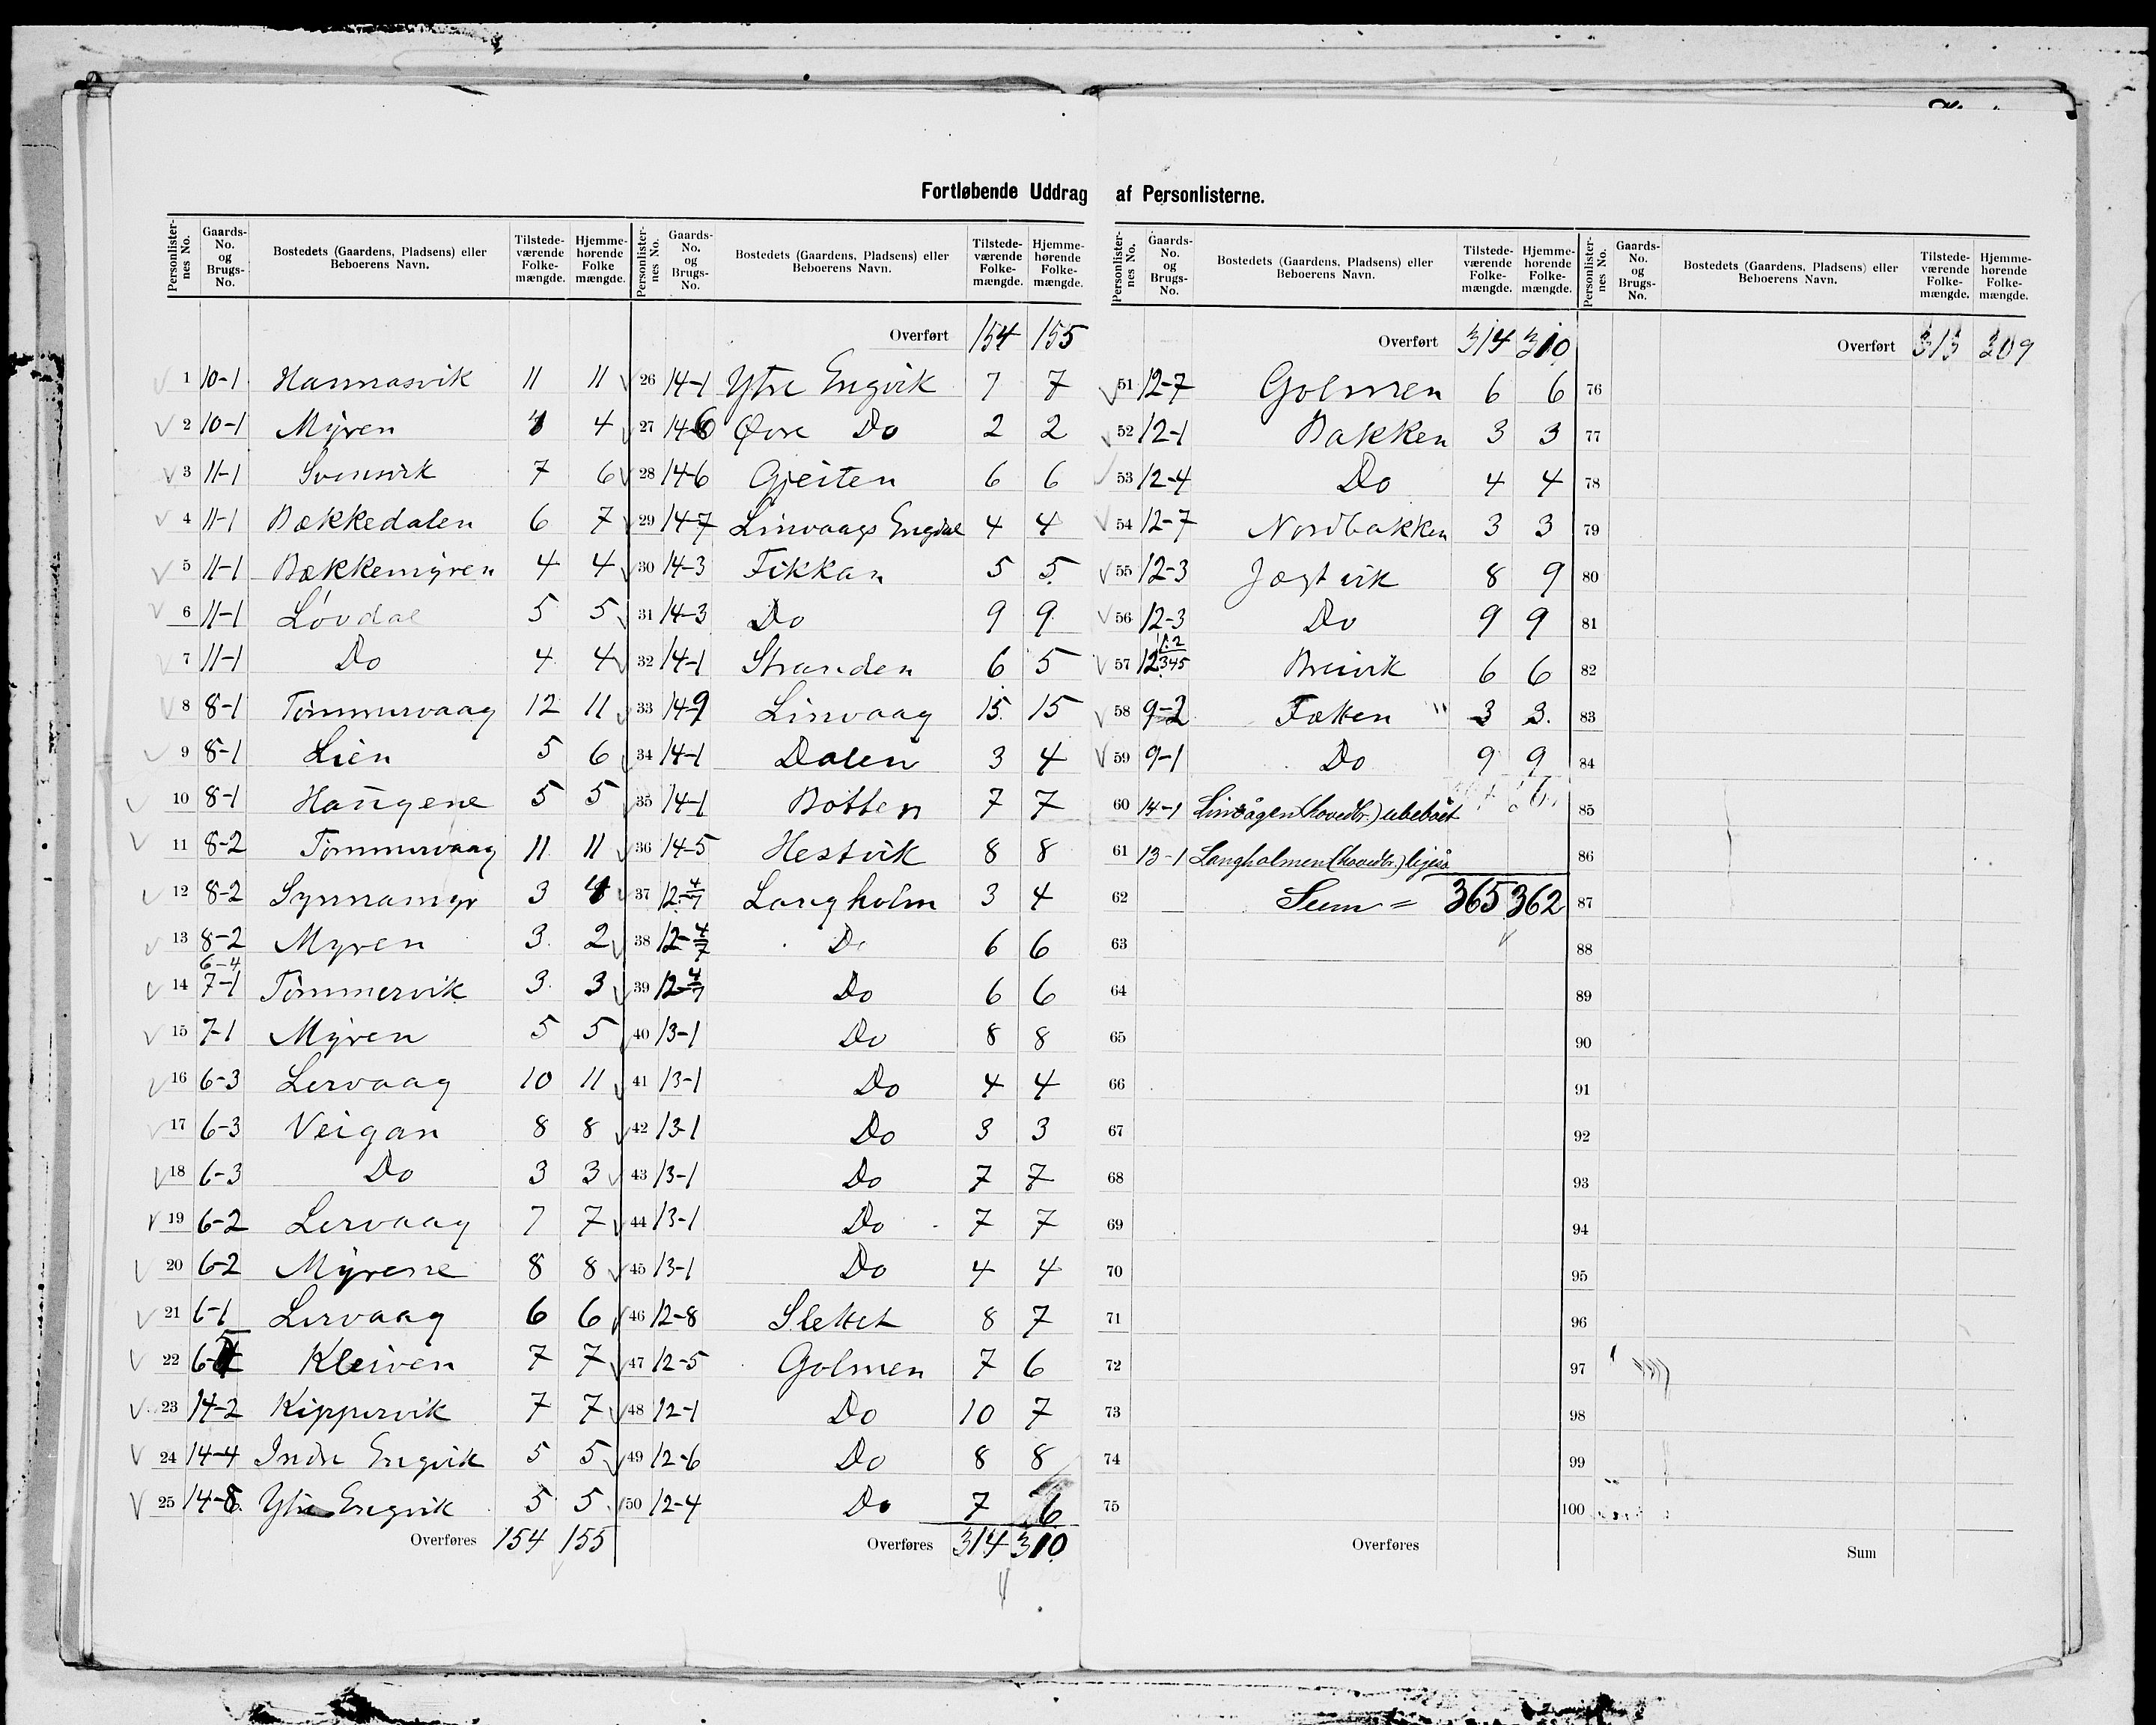 Fortløbende Uddrag af Personlisterne.
Personlisternes No. Gaards-No. og Brugs-No. Bostedets (Gaardens, Pladsens) eller Beboerens Navn. Tilstedeværende Folkemængde. Hjemmehørende Folkemængde.
1 10-1 Hamnasvik 11 11
2 10-1 Myren 4 4
3 11-1 Svensvik 7 6
4 11-1 Bækkedalen 6 7
5 11-1 Bækkemyren 4 4
6 11-1 Løvdal 5 5
7 11-1 Do 4 4
8 8-1 Tømmervaag 12 11
9 8-1 Lien 5 6
10 8-1 Haugene 5 5
11 8-2 Tømmervaag 11 11
12 8-2 Synnamyr 3 4
13 8-2 Myren 3 2
14 6-4 7-1 Tømmervik 3 3
15 7-1 Myren 5 5
16 6-3 Lervaag 10 11
17 6-3 Veigan 8 8
18 6-3 Do 3 3
19 6-2 Lervaag 7 7
20 6-2 Myrene 8 8
21 6-1 Lervaag 6 6
22 Kleiven 7 7
23 14-2 Kippervik 7 7
24 14-4 Indre Engvik 5 5
25 14-8 Ytre Engvik 5 5
Overføres 154 155
Personlisternes No. Gaards-No. og Brugs-No. Bostedets (Gaardens, Pladsens) eller Beboerens Navn. Tilstedeværende Folkemængde. Hjemmehørende Folkemængde.
Overført 154 155
26 14-1 Ytre Engvik 7 7
27 14-6 Øvre Do 2 2
28 14-6 Gjeiten 6 6
29 14-7 Linvaags Engdal 4 4
30 14-3 Fikkan 5 5
31 14-3 Do 9 9
32 14-1 Stranden 6 5
33 14-9 Linvaag 15 15
34 14-1 Dalen 3 4
35 14-1 Botten 7 7
36 14-5 Hestvik 8 8
37 12-4/7 Langholm 3 4
38 12-4/7 Do 6 6
39 12-4/7 Do 6 6
40 13-1 Do 8 8
41 13-1 Do 4 4
42 13-1 Do 3 3
43 13-1 Do 7 7
44 13-1 Do 7 7
45 13-1 Do 4 4
46 12-8 Slettet 8 7
47 12-5 Golmen 7 6
48 12-1 Do 10 7
49 12-6 Do 8 8
50 12-4 Do 7 6
Overføres 314 310
Personlisternes No. Gaards-No. og Brugs-No. Bostedets (Gaardens, Pladsens) eller Beboerens Navn. Tilstedeværende Folkemængde. Hjemmehørende Folkemængde.
Overført 314 310
51 12-7 Golmen 6 6
52 12-1 Bakken 3 3
53 12-4 Do 4 4
54 12-7 Nordbakken 3 3
55 12-3 Jægtvik 8 9
56 12-3 Do 9 9
57 12 1.2/345 Breivik 6 6
58 9-2 Fætten " 3 3
59 9-1 Do 9 9
60 14-1 Linvågen (hovedbr.) ubeboet
61 13-1 Langholmen (hovedbr.) ligeså
62 Sum = 365 362
63
64
65
66
67
68
69
70
71
72
73
74
75
Overføres
Personlisternes No. Gaards-No. og Brugs-No. Bostedets (Gaardens, Pladsens) eller Beboerens Navn. Tilstedeværende Folkemængde. Hjemmehørende Folkemængde.
Overført 313 309
76
77
78
79
80
81
82
83
84
85
86
87
88
89
90
91
92
93
94
95
96
97
98
99
100
Sum